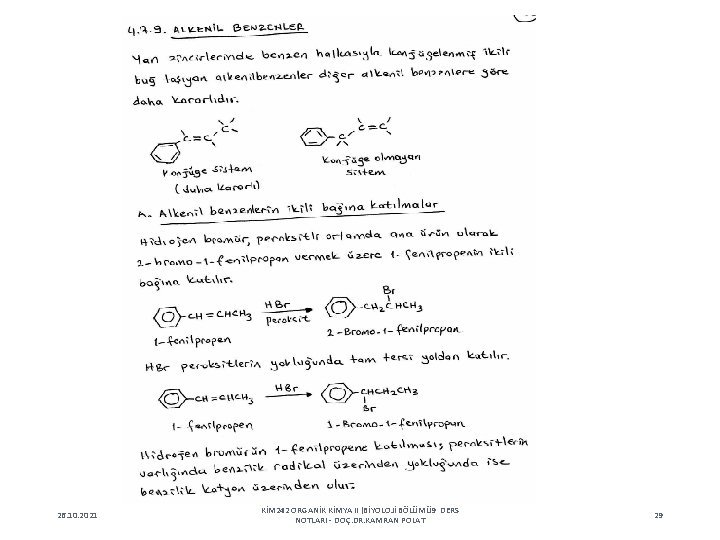 4.7.9. ALKENİL BENZENLER
Yan zincirlerinde benzen halkasıyla konjügelenmiş ikili
bağ taşıyan alkenilbenzenler diğer alkenil benzenlere göre
daha kararlıdır.
C=C C C
C C=C
Konjüge sistem
(daha kararlı)
Konjüge olmayan
sistem
A. Alkenil benzenlerin ikili bağına katılmalar
Hidrojen bromür, peroksitli ortamda ana ürün olarak
2-bromo-1-fenilpropan vermek üzere 1-fenilpropenin ikili
bağına katılır.
CH=CHCH3 HBr Peroksit CH2CHCH3 Br
1-fenilpropen
2-Bromo-1-fenilpropan
HBr peroksitlerin yokluğunda tam tersi yoldan katılır.
CH=CHCH3 HBr CHCH2CH3
Br
1-fenilpropen 1-Bromo-1-fenilpropan
Hidrojen bromürün 1-fenilpropene katılması, peroksitlerin
varlığında benzilik radikal üzerinden yokluğunda ise
benzilik katyon üzerinden olur.
26.10.2021
KİM242 ORGANİK KİMYA II (BİYOLOJİ BÖLÜMÜ)- DERS
NOTLARI - DOÇ.DR.KAMRAN POLAT
29